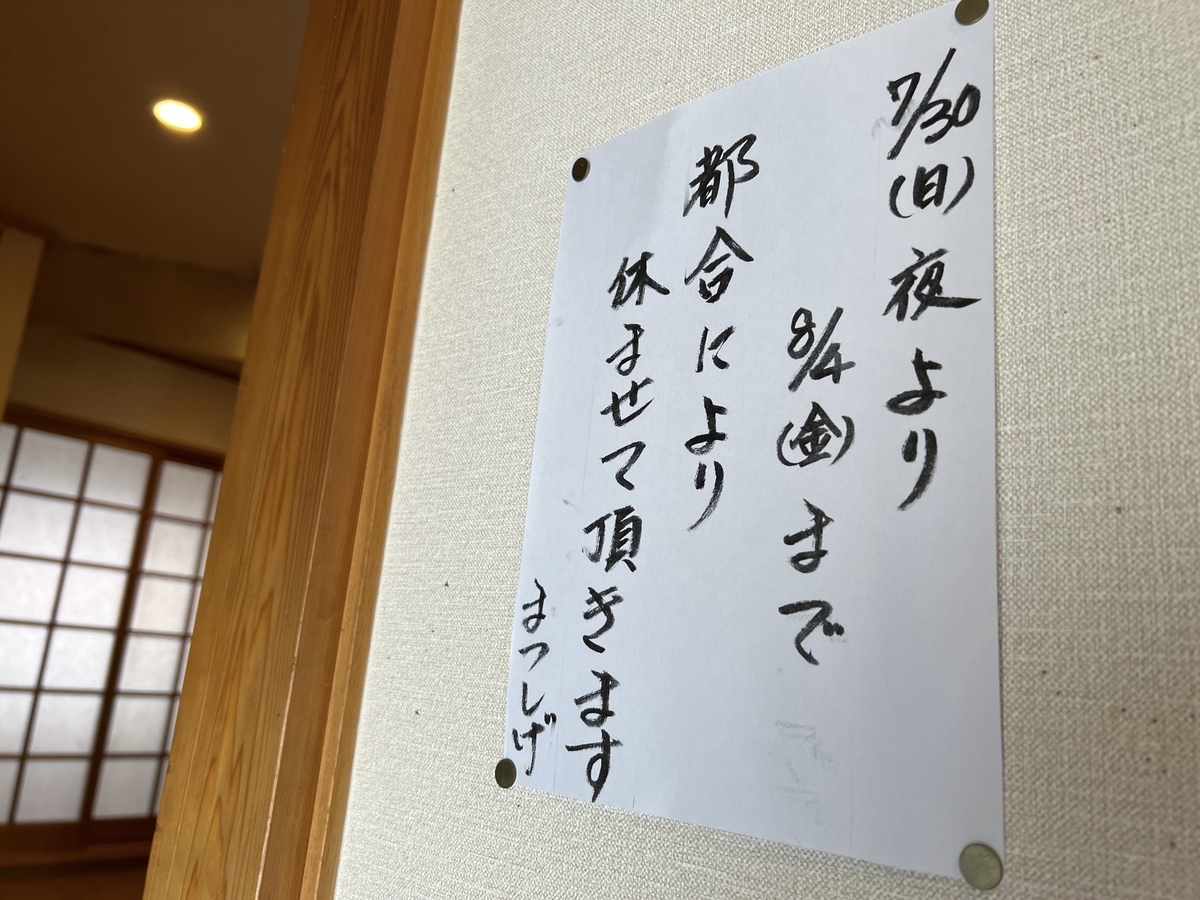 7/30(日)夜より
8/4(金)まで
都合により
休ませて頂きます
まつしげ